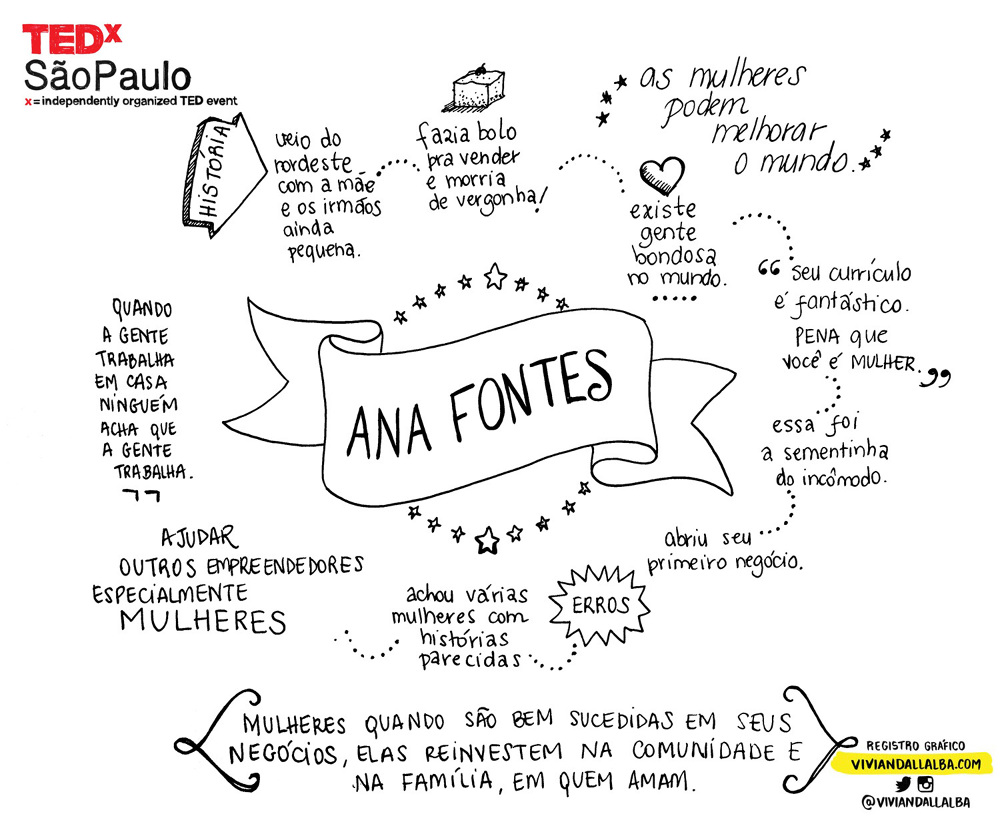 TEDx
SãoPaulo
x=independently organized TED event
HISTÓRIA
veio do
nordeste
com a mãe
e os irmãos
ainda
pequena.
fazia bolo
pra vender
e morria
de vergonha!
as mulheres
podem
melhorar
o mundo.
existe
gente
bondosa
no mundo.
“ seu currículo
é fantástico.
PENA que
você é MULHER. ”
essa foi
a sementinha
do incômodo.
abriu seu
primeiro negócio.
ERROS
achou várias
mulheres com
histórias
parecidas
AJUDAR
OUTROS EMPREENDEDORES
ESPECIALMENTE
MULHERES
QUANDO
A GENTE
TRABALHA
EM CASA
NINGUÉM
ACHA QUE
A GENTE
TRABALHA.
ANA FONTES
MULHERES QUANDO SÃO BEM SUCEDIDAS EM SEUS
NEGÓCIOS, ELAS REINVESTEM NA COMUNIDADE E
NA FAMÍLIA, EM QUEM AMAM.
REGISTRO GRÁFICO
VIVIANDALLALBA.COM
@VIVIANDALLALBA